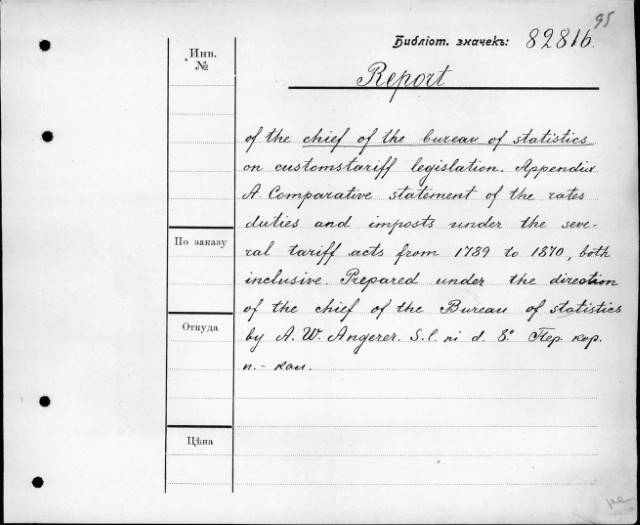 95
Библіот. значекъ: 82816.
Инв. №
Report
of the chief of the bureau of statistics
on customstariff legislation. Appendix
A. Comparative statement of the rates
duties and imposts under the seve-
ral tariff acts from 1789 to 1870, both
inclusive. Prepared under the direction
of the chief of the Bureau of statistics
by A. W. Angerer. S. l. ni d. 8° Пер. кор.
п.- кол.
По заказу
Откуда
Цѣна